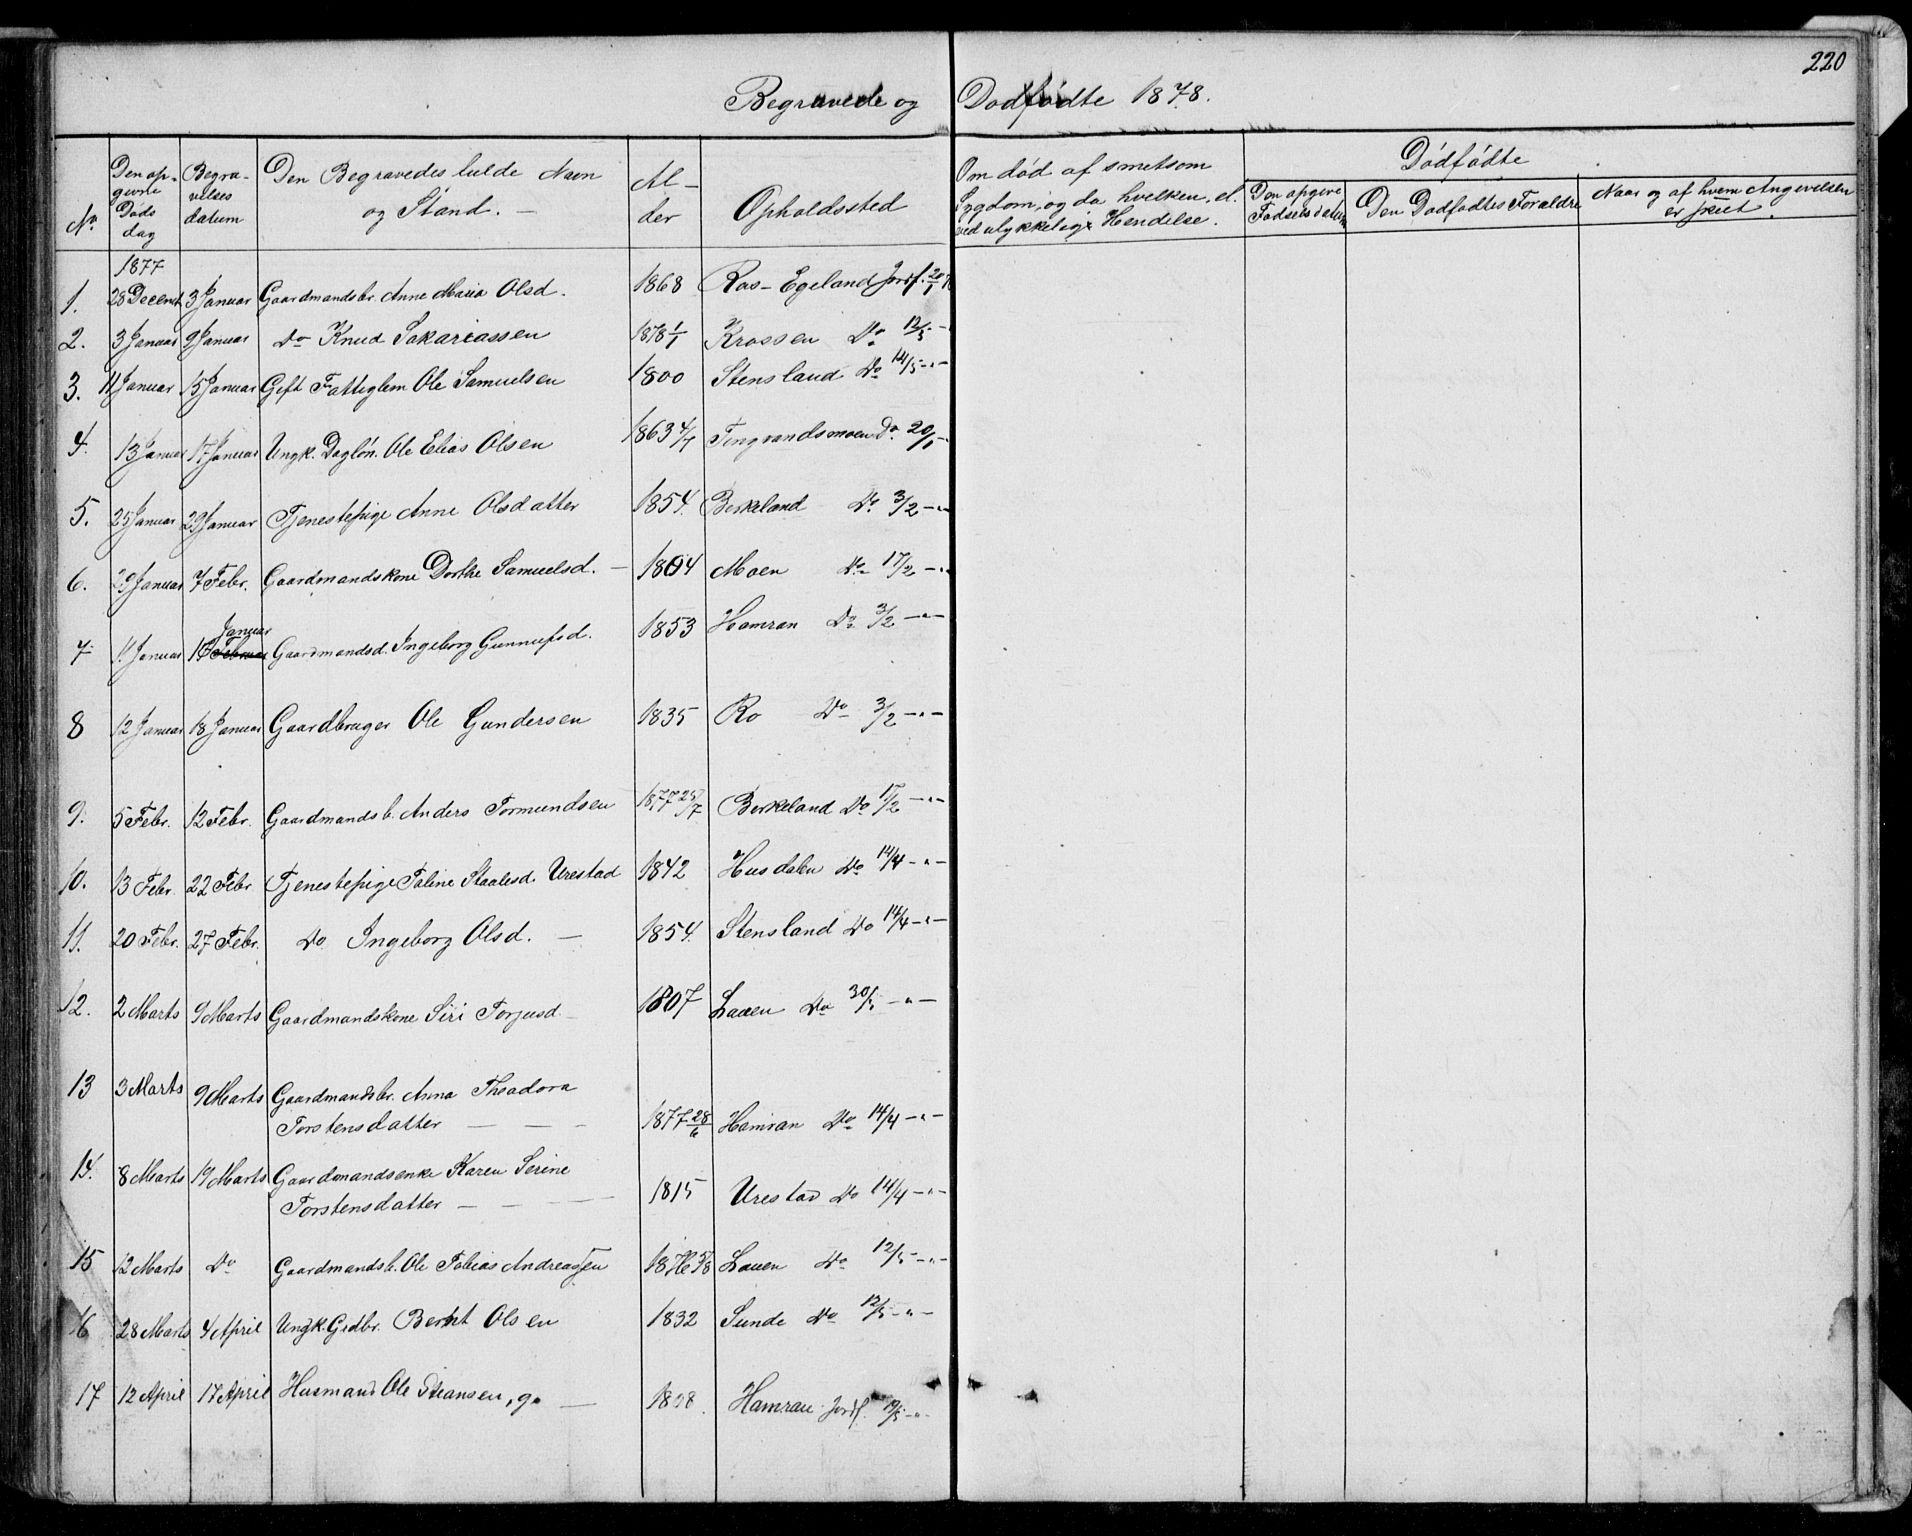 220
Begravede og Dødfødte 1878.
No. Den op- givne Døds dag Begra- velses datum Den Begravedes fulde Navn og Stand. — Al- der Opholdssted Om død af smetsom Sygdom, og da hvilken, el. ved ulykkelig Hendelse. Dødfødte
Den opgivne Fødselsdatum Den Dødfødtes Forældre Naar og af hvem Angivelsen er skeet.
1877
1. 28 Decemb 3 Januar Gaardmandsbr. Anne Maria Olsd. 1868 Ros-Egeland Jordf. 20/1
2. 3 Januar 9 Januar Do Knud Sakariassen 1878 1/1 Krossen Do 12/5 -"-
3. 11 Januar 15 Januar Gift Fattiglem Ole Samuelsen 1800 Stensland Do 14/5 -"-
4. 13 Januar 17 Januar Ungk. Dagløn. Ole Elias Olsen 1863 4/7 Tingvandsmoen Do 20/1 -
5. 25 Januar 29 Januar Tjenestepige Anne Olsdatter 1854 Birkeland Do 3/2 -"-
6. 29 Januar 7 Febr. Gaardmandskone Dorthe Samuelsd. — 1804 Moen Do 17/2 -"-
Januar
7 11 Januar 17 Februar Gaardmandsd. Ingeborg Gunnufsd. 1853 Hamran Do 3/2 -"-
8 12 Januar 18 Januar Gaardbruger Ole Gundersen 1835 Ro Do 3/2 -"-
9. 5 Febr. 12 Febr. Gaardmandsb. Anders Tormundsen 1877 25/7 Birkeland Do 17/2 -"-
10. 13 Febr. 22 Febr. Tjenestepige Taline Staalesd. Urestad 1842 Husdalen Do 14/4 -"-
11. 20 Febr. 27 Febr. Do Ingeborg Olsd. — 1854 Stensland Do 14/4 -"-
12. 2 Marts 9 Marts Gaardmandskone Siri Torjusd. — 1807 Lauen Do -"-
13 3 Marts 9 Marts Gaardmandsbr. Anna Theodora
Torstensdatter — — — 1877 28/6 Hamran Do 14/4 -"-
14. 8 Marts 19 Marts Gaardmandsenke Karen Serine
Torstensdatter — — — 1815 Urestad Do 14/4 -"-
15 12 Marts Do Gaardmandsb. Ole Tobias Andreassen Lauen Do 12/5 -"-
16 28 Marts 4 April Ungk. Grdbr. Bernt Olsen 1832 Sunde Do 12/5 -"-
17 12 April 17 April Husmand Ole — 1808 Hamran Jordf. -"-